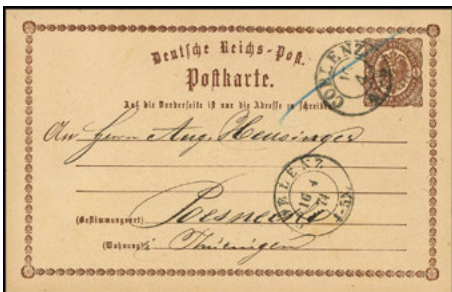 Deutsche Reichs-Post.
COBLENZ
Postkarte.
Auf die Vorderseite ist nur die Adresse zu schreiben.
An Herrn Aug. Heusinger
COBLENZ
16 4 74
(Bestimmungsort)
(Wohnung) Thüringen